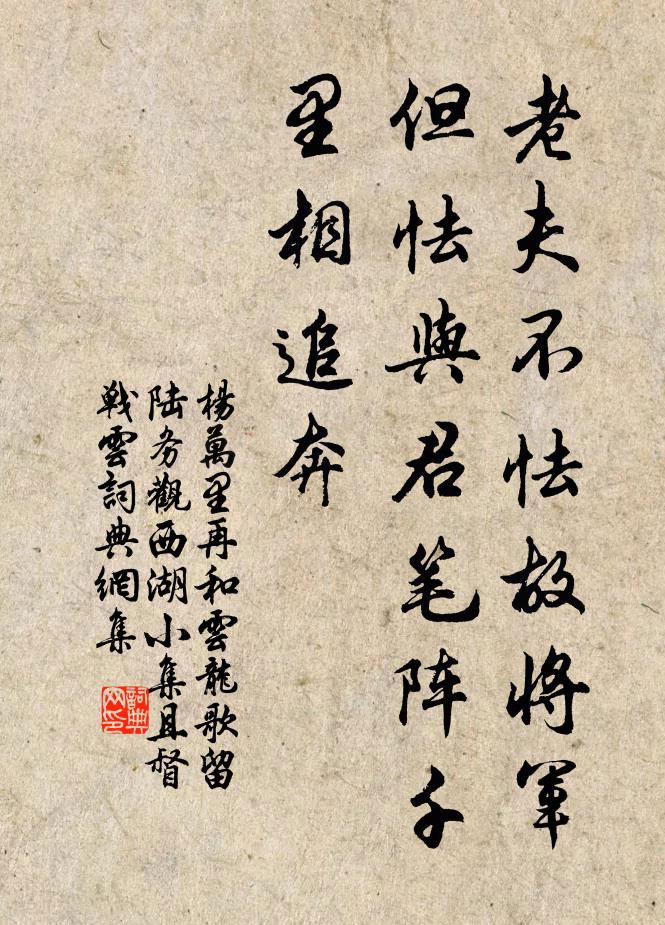 老夫不怯故將軍
但怯與君笔阵千
里相追奔
楊萬里再和雲龍歌留
陆务觀西湖小集且督
戰雲詞典網集
詞典
网印